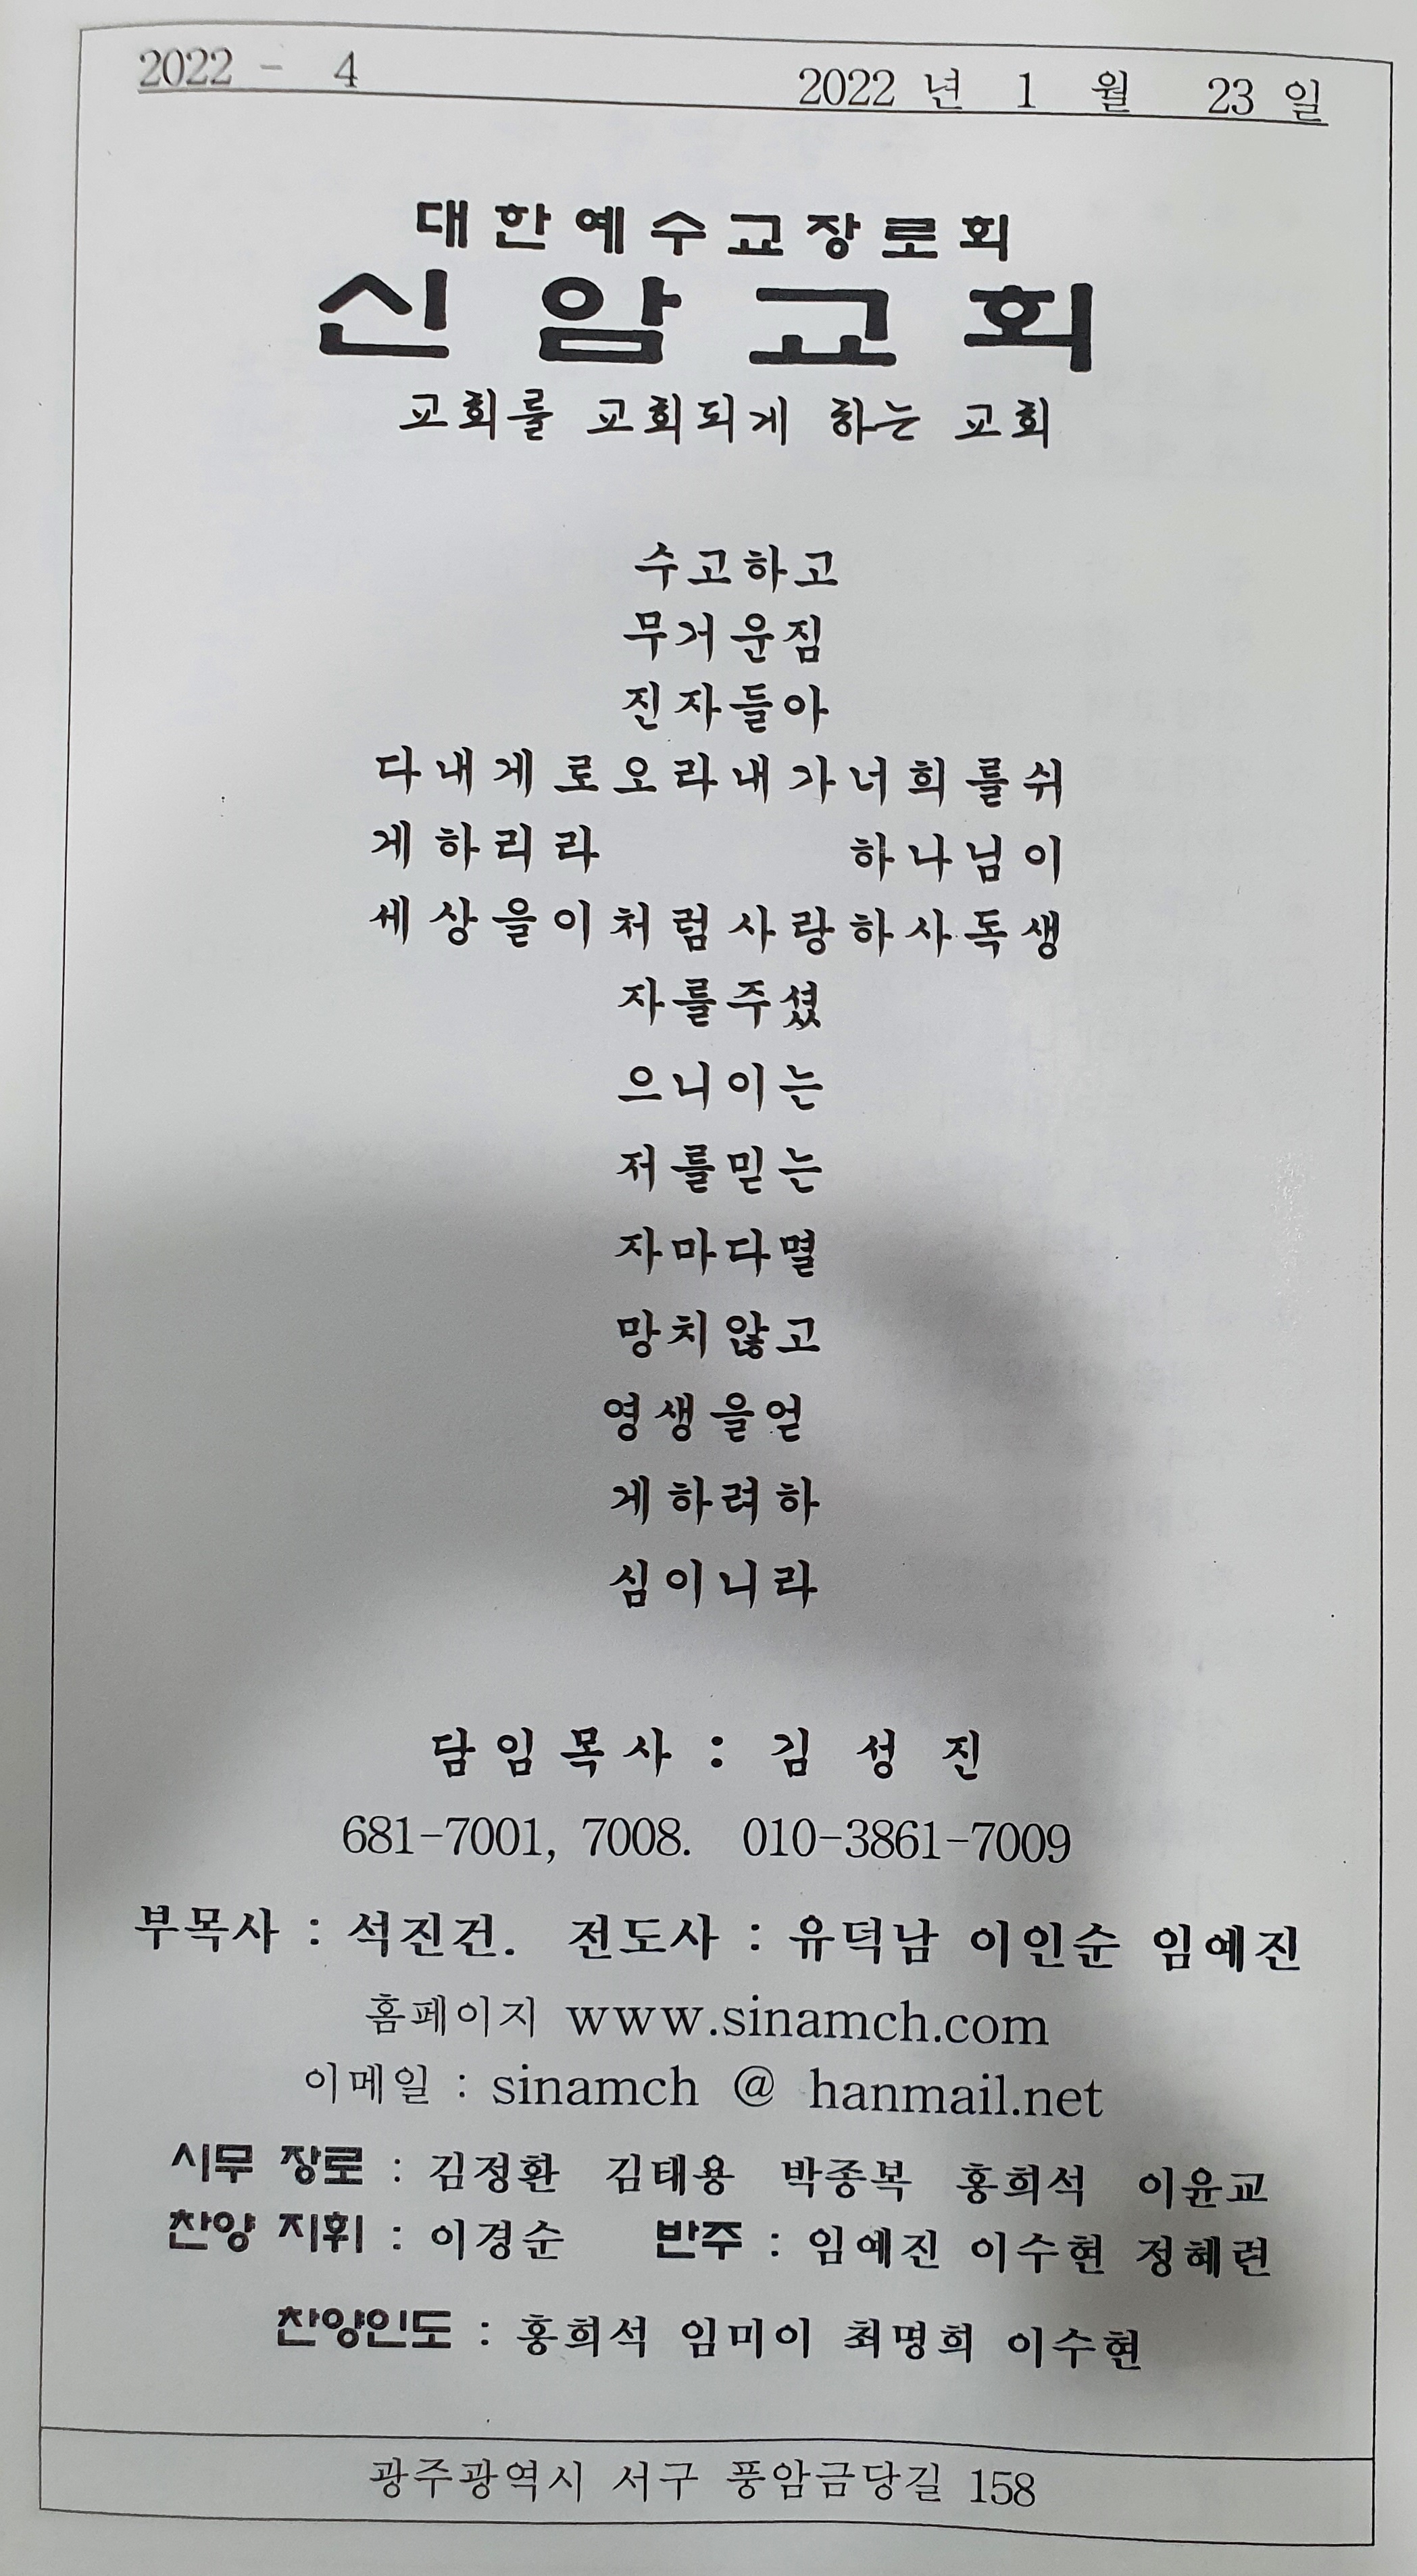 2022 - 4 2022 년 1 월 23 일
대한예수교장로회
신암교회
교회를 교회되게 하는 교회
수고하고
무거운짐
진자들아
다내게로오라내가너희를쉬
게하리라 하나님이
세상을이처럼사랑하사독생
자를주셨
으니이는
저를믿는
자마다멸
망치않고
영생을얻
게하려하
심이니라
담임목사 : 김 성 진
681-7001, 7008. 010-3861-7009
부목사 : 석진건. 전도사 : 유덕남 이인순 임예진
홈페이지 www.sinamch.com
이메일 : sinamch @ hanmail.net
시무 장로 : 김정환 김태용 박종복 홍희석 이윤교
찬양 지휘 : 이경순 반주 : 임예진 이수현 정혜련
찬양인도 : 홍희석 임미이 최명희 이수현
광주광역시 서구 풍암금당길 158